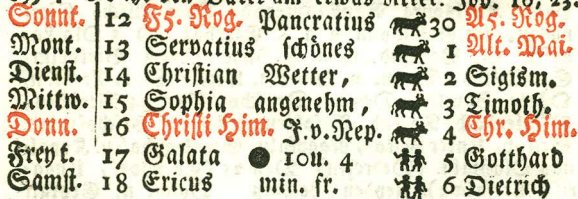 Sonnt. 12 F5. Rog. Pancratius 30 A5. Rog.
Mont. 13 Servatius schönes 1 Alt. Mai-
Dienst. 14 Christian Wetter, 2 Sigism.
Mittw. 15 Sophia angenehm, 3 Timoth.
Donn. 16 Christi Him. J.v.Nep. 4 Chr. Him.
Freyt. 17 Galata 10u. 4 5 Gotthard
Samst. 18 Ericus min. fr. 6 Dietrich